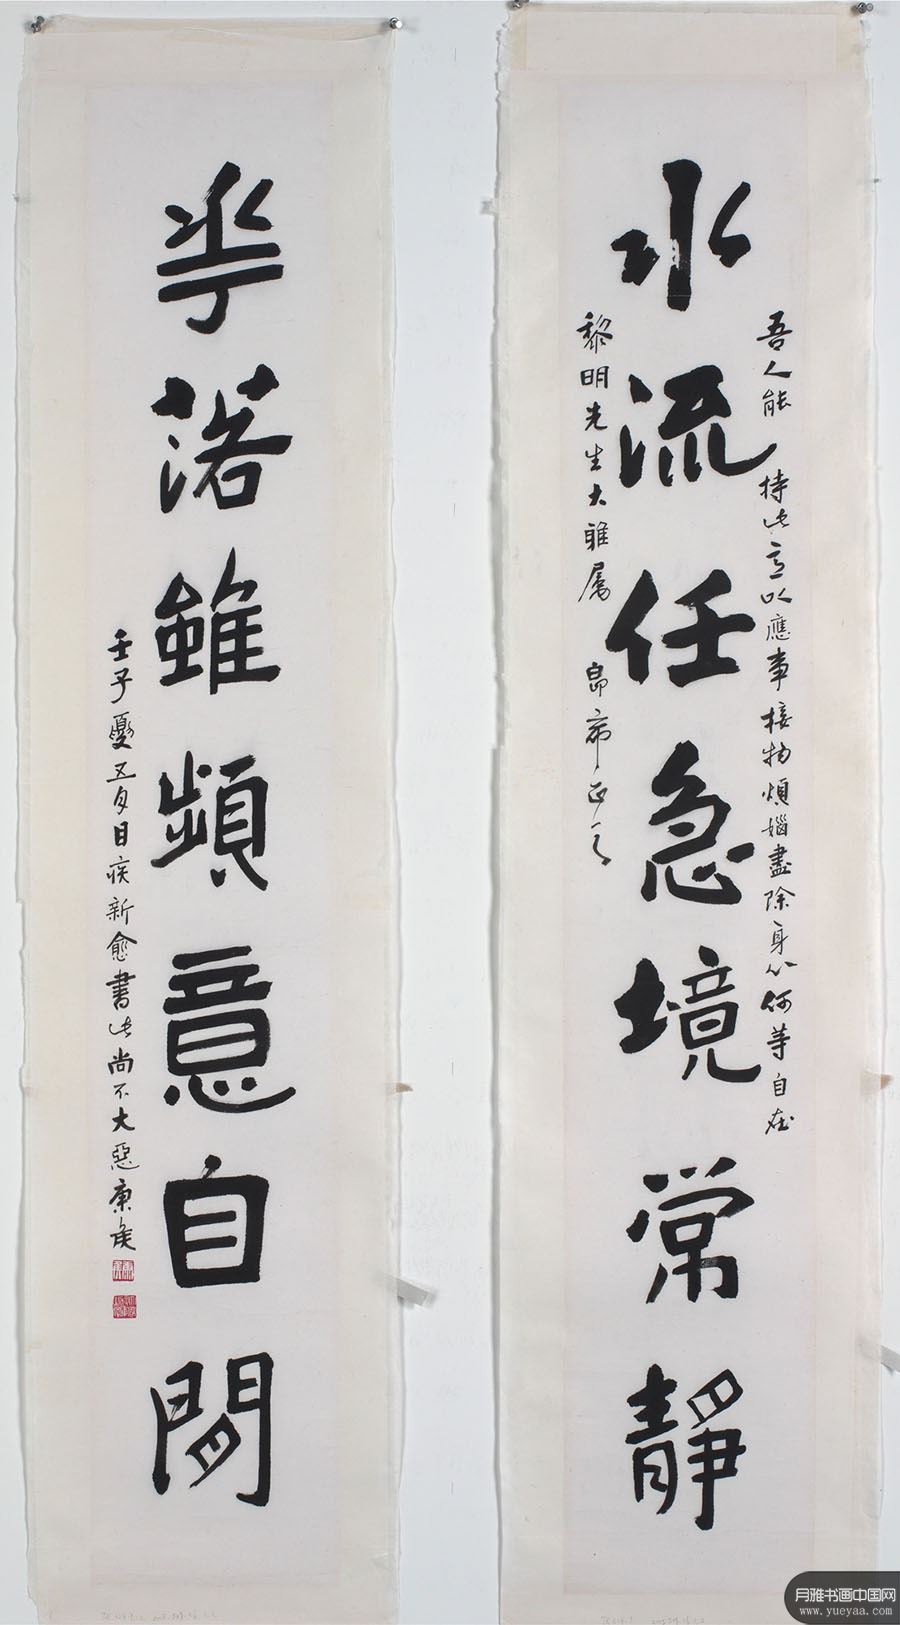 水流任急境常靜
吾人能持此意以應事接物煩惱盡除身心何等自在
黎明先生大雅屬
即希正之
花落雖頻意自閒
壬子夏五月目疾新愈書此尚不大惡康侯
月雅书画中国网
www.yueyaa.com